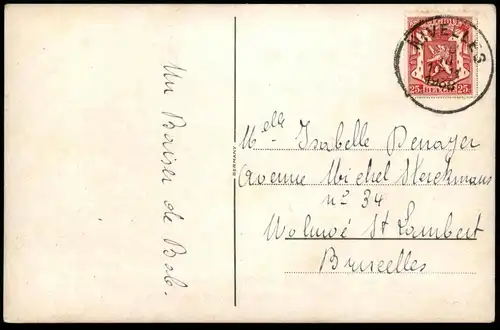 Un Baiser de Bob.
GERMANY
BELGIQUE
25 BELGIE 25
NIVELLES
Melle Isabelle Denayer
Avenue Michel Sterckmans
n° 34
Woluwé St Lambert
Bruxelles